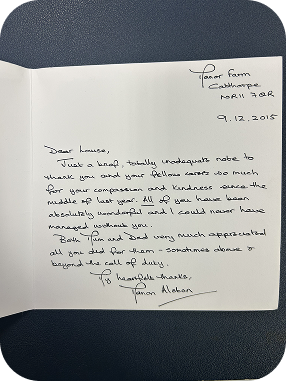 Manor Farm
Calthorpe
NR11 7QR
9.12.2015
Dear Louise,
Just a brief, totally inadequate note to
thank you and your fellow carers so much
for your compassion and kindness since the
middle of last year. All of you have been
absolutely wonderful and I could never have
managed without you.
Both Mum and Dad very much appreciated
all you did for them - sometimes above &
beyond the call of duty.
My heartfelt thanks,